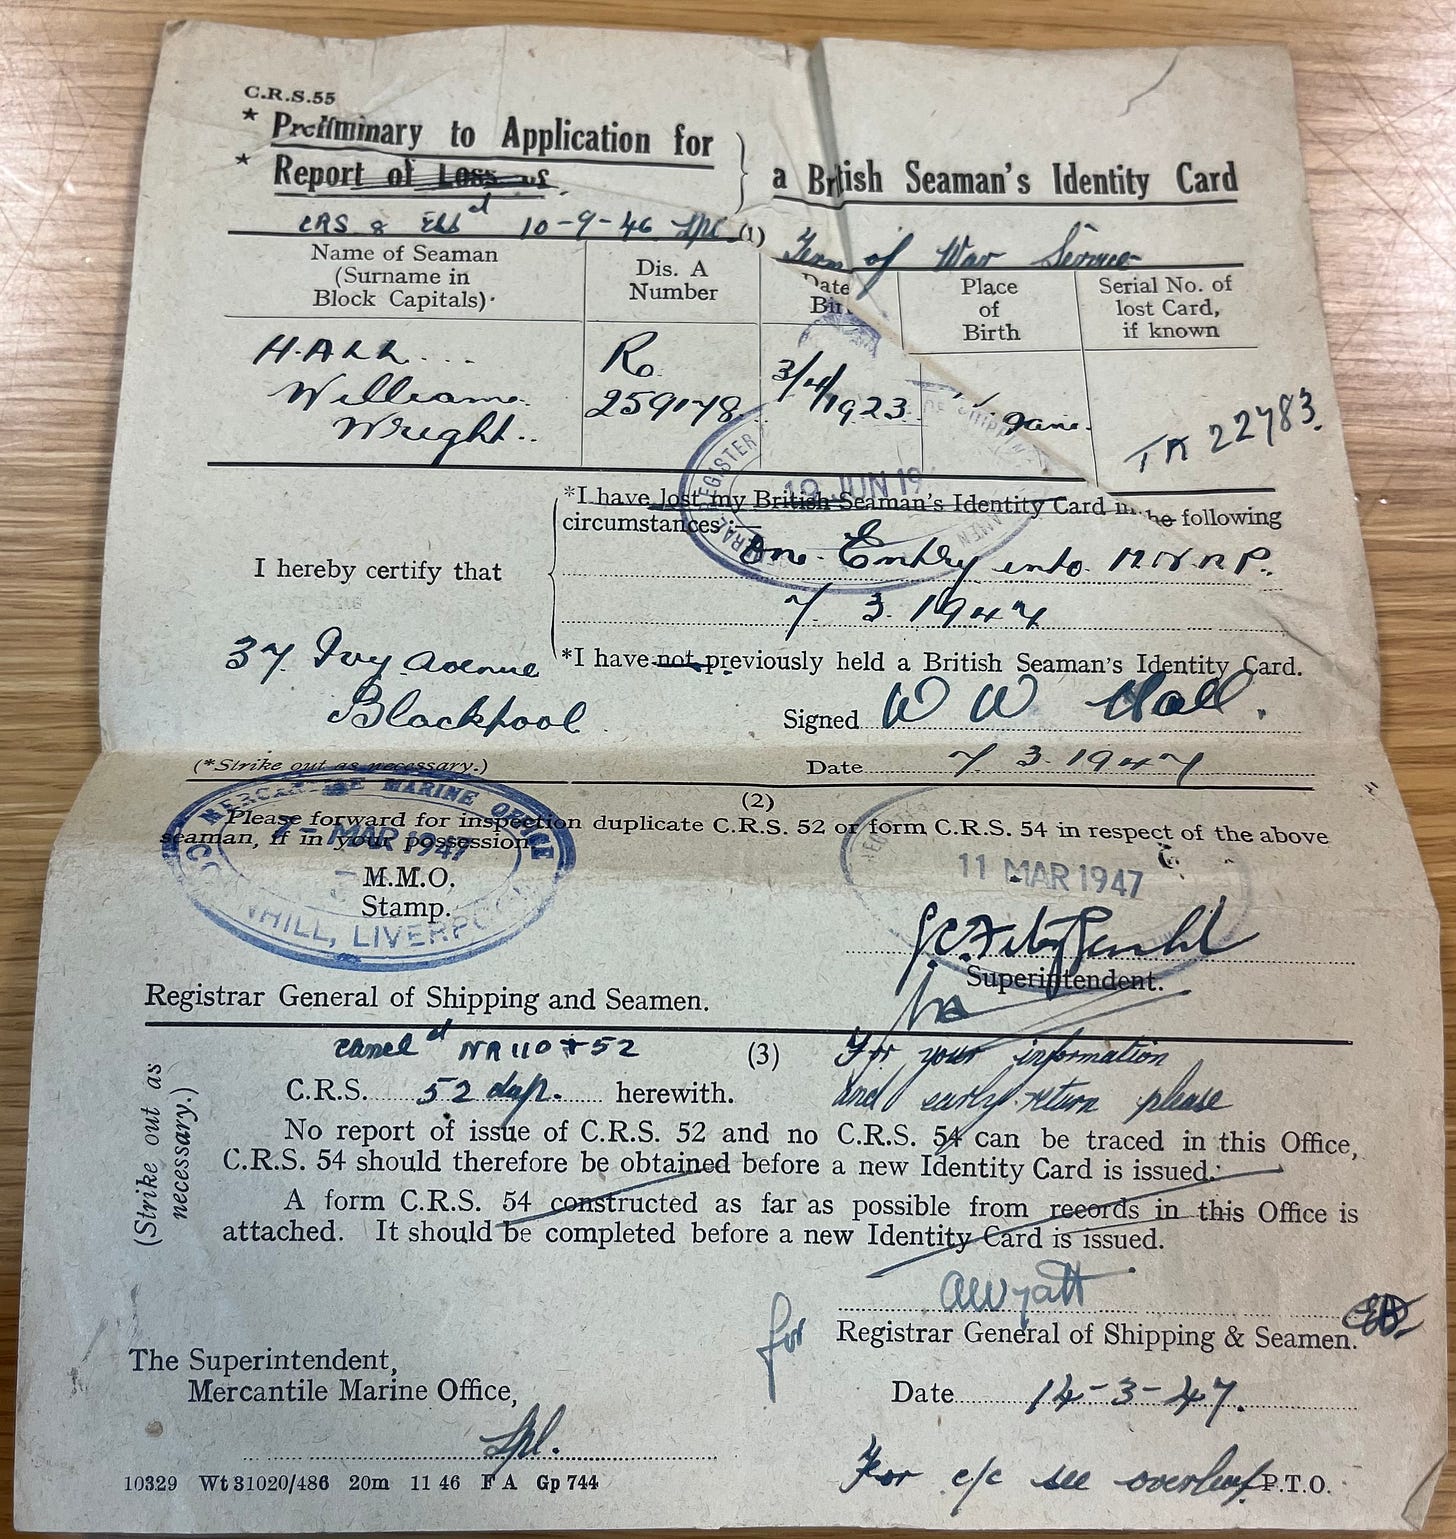 C.R.S.55
* Preliminary to Application for
* Report of Loss of
a British Seaman's Identity Card
CRS 8 10-9-46 Lpl (1) Term of War Service
Name of Seaman
(Surname in
Block Capitals)
Dis. A
Number
Date
Bir
Place
of
Birth
Serial No. of
lost Card,
if known
HALL
William
Wright
R
259178
3/4/1923
TA 22783
REGISTER SHIPPING SEAMEN
19 JUN 19
I hereby certify that
*I have lost my British Seaman's Identity Card in the following
circumstances:
One Entry into M.N.R.P.
7 3. 1947
37 Ivy Avenue
Blackpool
*I have not previously held a British Seaman's Identity Card.
Signed W W Hall.
(*Strike out as necessary.)
Date 7 3. 1947
(2)
Please forward for inspection duplicate C.R.S. 52 or form C.R.S. 54 in respect of the above
seaman, if in your possession.
MERCANTILE MARINE OFFICE
7 - MAR 1947
HILL, LIVERPOOL
M.M.O.
Stamp.
11 MAR 1947
Superintendent.
Registrar General of Shipping and Seamen.
cancld (3) For your information
C.R.S. 52 dup. herewith. and early return please
No report of issue of C.R.S. 52 and no C.R.S. 54 can be traced in this Office,
C.R.S. 54 should therefore be obtained before a new Identity Card is issued.
A form C.R.S. 54 constructed as far as possible from records in this Office is
attached. It should be completed before a new Identity Card is issued.
(Strike out as
necessary.)
AWyatt
for Registrar General of Shipping & Seamen.
The Superintendent,
Mercantile Marine Office,
Date 14-3-47.
Lpl.
10329 Wt 31020/486 20m 11 46 F A Gp 744
For c/c see overleaf P.T.O.